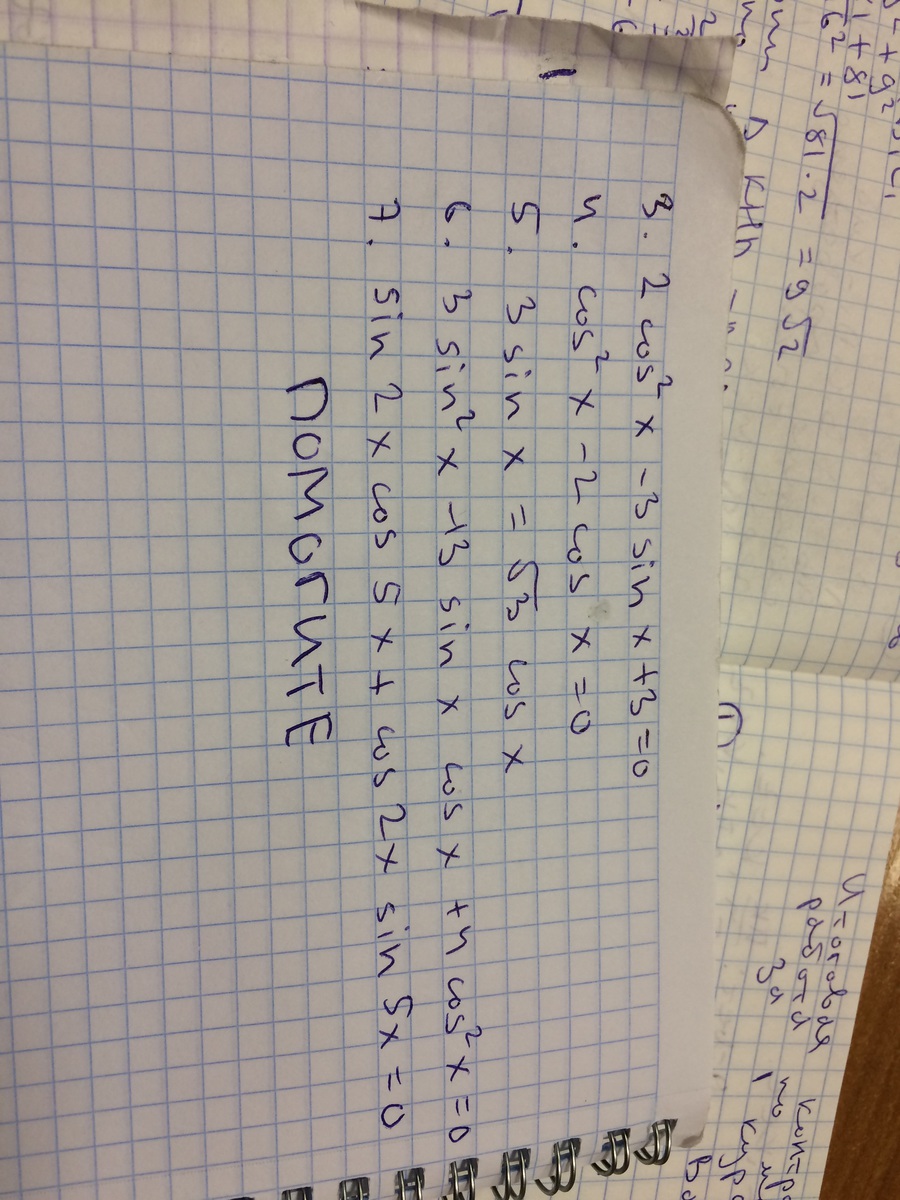 3. 2 cos² x - 3 sin x + 3 = 0
4. cos² x - 2 cos x = 0
5. 3 sin x = √3 cos x
6. 3 sin² x - 13 sin x cos x + 4 cos² x = 0
7. sin 2x cos 5x + cos 2x sin 5x = 0
ПОМОГИТЕ
= √81·2 = 9√2
1 + 81
Итоговая
работа
за
1 курс